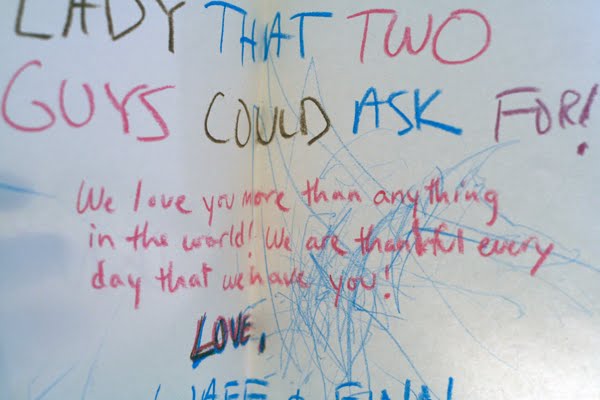 LADY THAT TWO
GUYS COULD ASK FOR!
We love you more than anything
in the world! We are thankful every
day that we have you!
LOVE,
& FINN